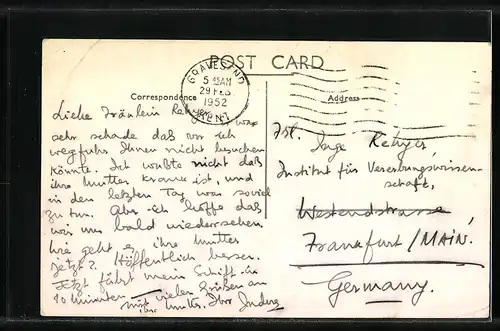 POST CARD
GRAVESEND
5 45AM
29 FEB
1952
KENT
Correspondence
Address
Liebe Fräulein
war
sehr schade daß vor ich
wegfuhr Ihnen nicht besuchen
könnte. Ich wußte nicht daß
ihre Mutter krank ist, und
in den letzten Tag war soviel
zu tun. Aber ich hoffe daß
wir uns bald wiedersehen.
Wie geht es ihre Mutter
jetzt? Höffentlich besser.
Jetzt fährt mein Schiff in
10 minuten – mit vielen Grüßen an
Ihre Mutter. Ihr
Frl. Inge
Institut für Vererbungswissen-
schaft,
Westendstrasse
Frankfurt/MAIN.
Germany.